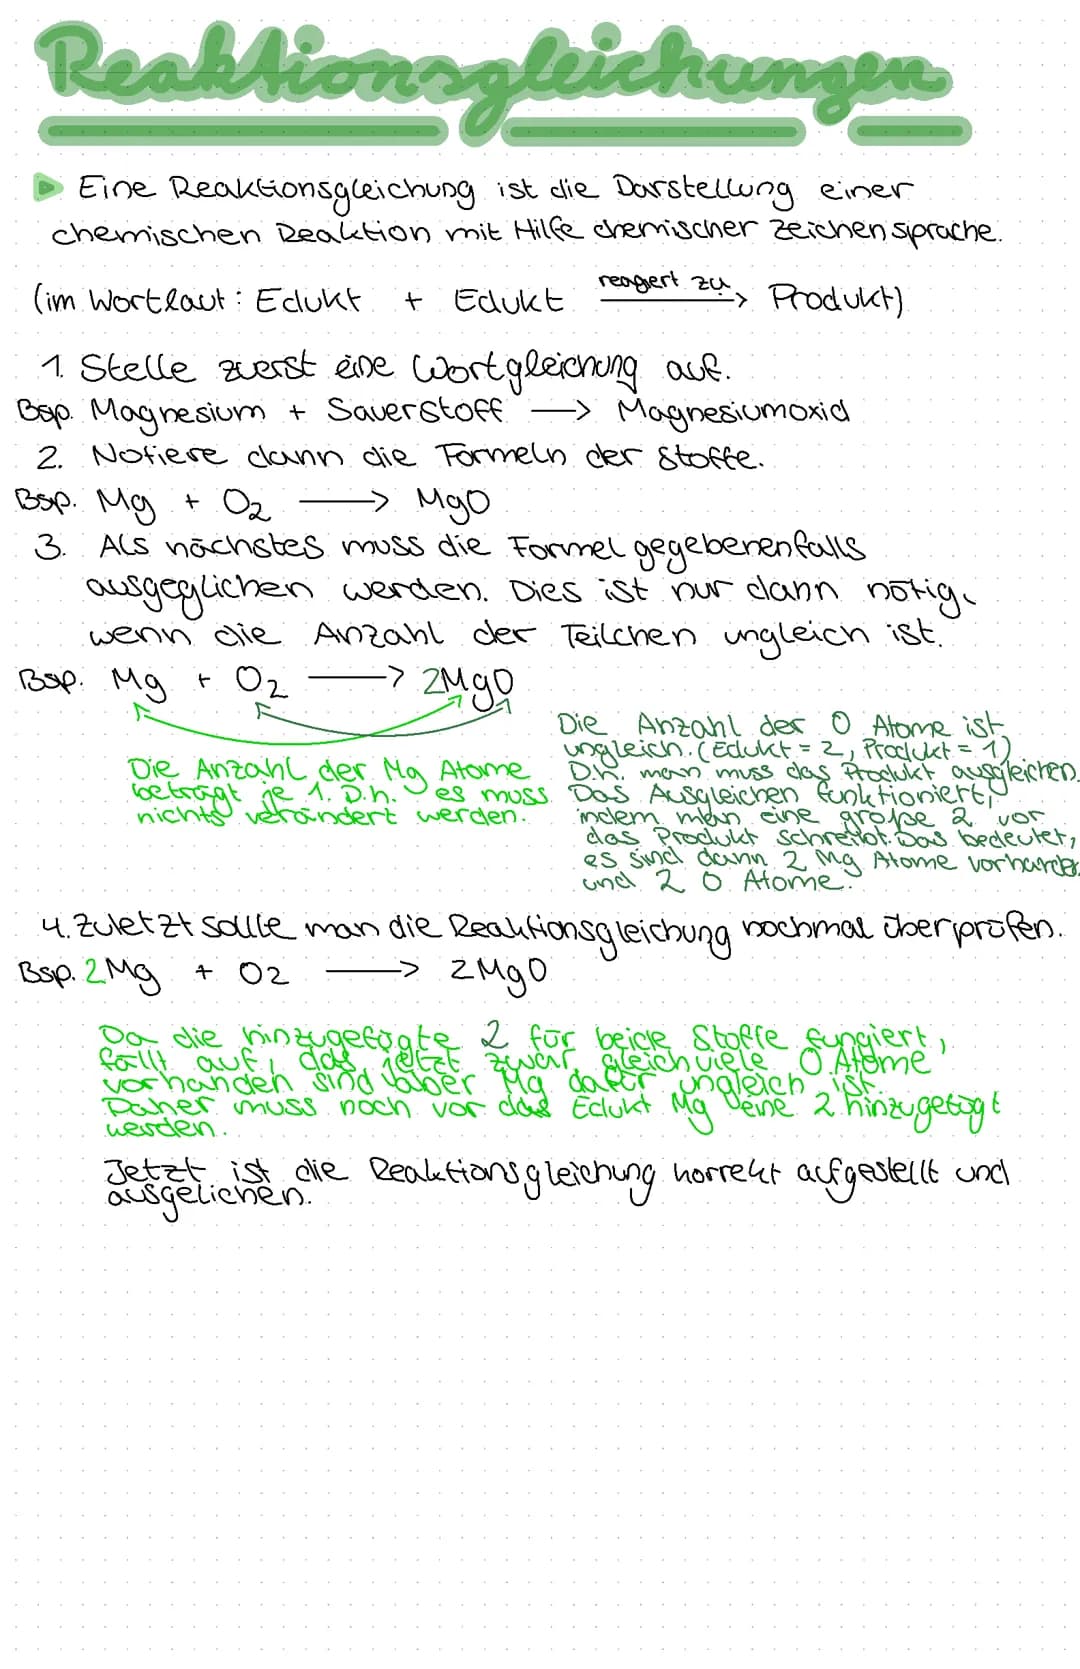 Reaktionsgleichungen
Eine Reaktionsgleichung ist die Darstellung einer
chemischen Reaktion mit Hilfe chemischer Zeichensprache.
(im Wortlaut: Edukt + Edukt reagiert zu → Produkt)
1. Stelle zuerst eine Wortgleichung auf.
Bsp. Magnesium + Sauerstoff → Magnesiumoxid
2. Notiere dann die Formeln der Stoffe.
Bsp. Mg + O₂ → MgO
3. Als nächstes muss die Formel gegebenenfalls
ausgeglichen werden. Dies ist nur dann nötig,
wenn die Anzahl der Teilchen ungleich ist.
Bsp. Mg + O₂ → 2MgO
Die Anzahl der Mg Atome
beträgt je 1. D.h. es muss
nichts verändert werden.
Die Anzahl der O Atome ist
ungleich. (Edukt = 2, Produkt = 1)
D.h. man muss das Produkt ausgleichen.
Das Ausgleichen funktioniert,
indem man eine große 2 vor
das Produkt schreibt. Das bedeutet,
es sind dann 2 Mg Atome vorhanden
und 2 O Atome.
4. Zuletzt sollte man die Reaktionsgleichung nochmal überprüfen.
Bsp. 2Mg + O2 → 2MgO
Da die hinzugefügte 2 für beide Stoffe fungiert,
fällt auf, das jetzt zwar gleich viele O Atome
vorhanden sind aber Mg dafür ungleich ist.
Daher muss noch vor das Edukt Mg eine 2 hinzugefügt
werden.
Jetzt ist die Reaktionsgleichung korrekt aufgestellt und
ausgelichen.